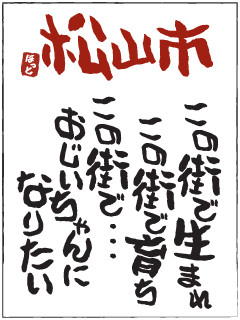 松山市
ほっと
この街で生まれ
この街で育ち
この街で・・・
おじいちゃんに
なりたい